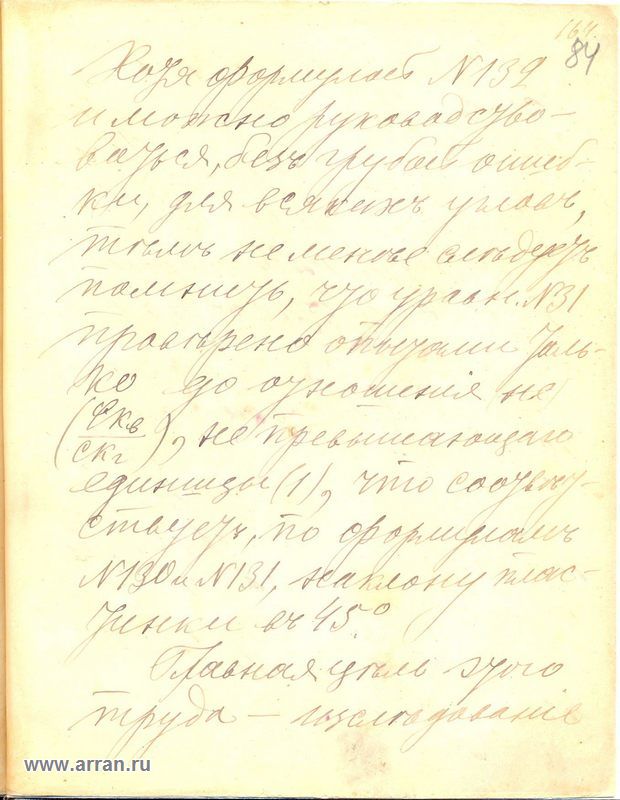 164.
84
Хотя формулой N132
и можно руководство-
ваться, безъ грубой ошиб-
ки, для всякихъ угловъ,
тѣмъ не менѣе слѣдуетъ
помнить, что уравн. N31
провѣрено опытами толь-
ко до отношения не
(Скв/Скг), не превышающаго
единицы (1), что соотвѣт-
ствуетъ, по формуламъ
N130 и N131, наклону плас-
тинки въ 45°
Главная цѣль этого
труда — изслѣдование
www.arran.ru